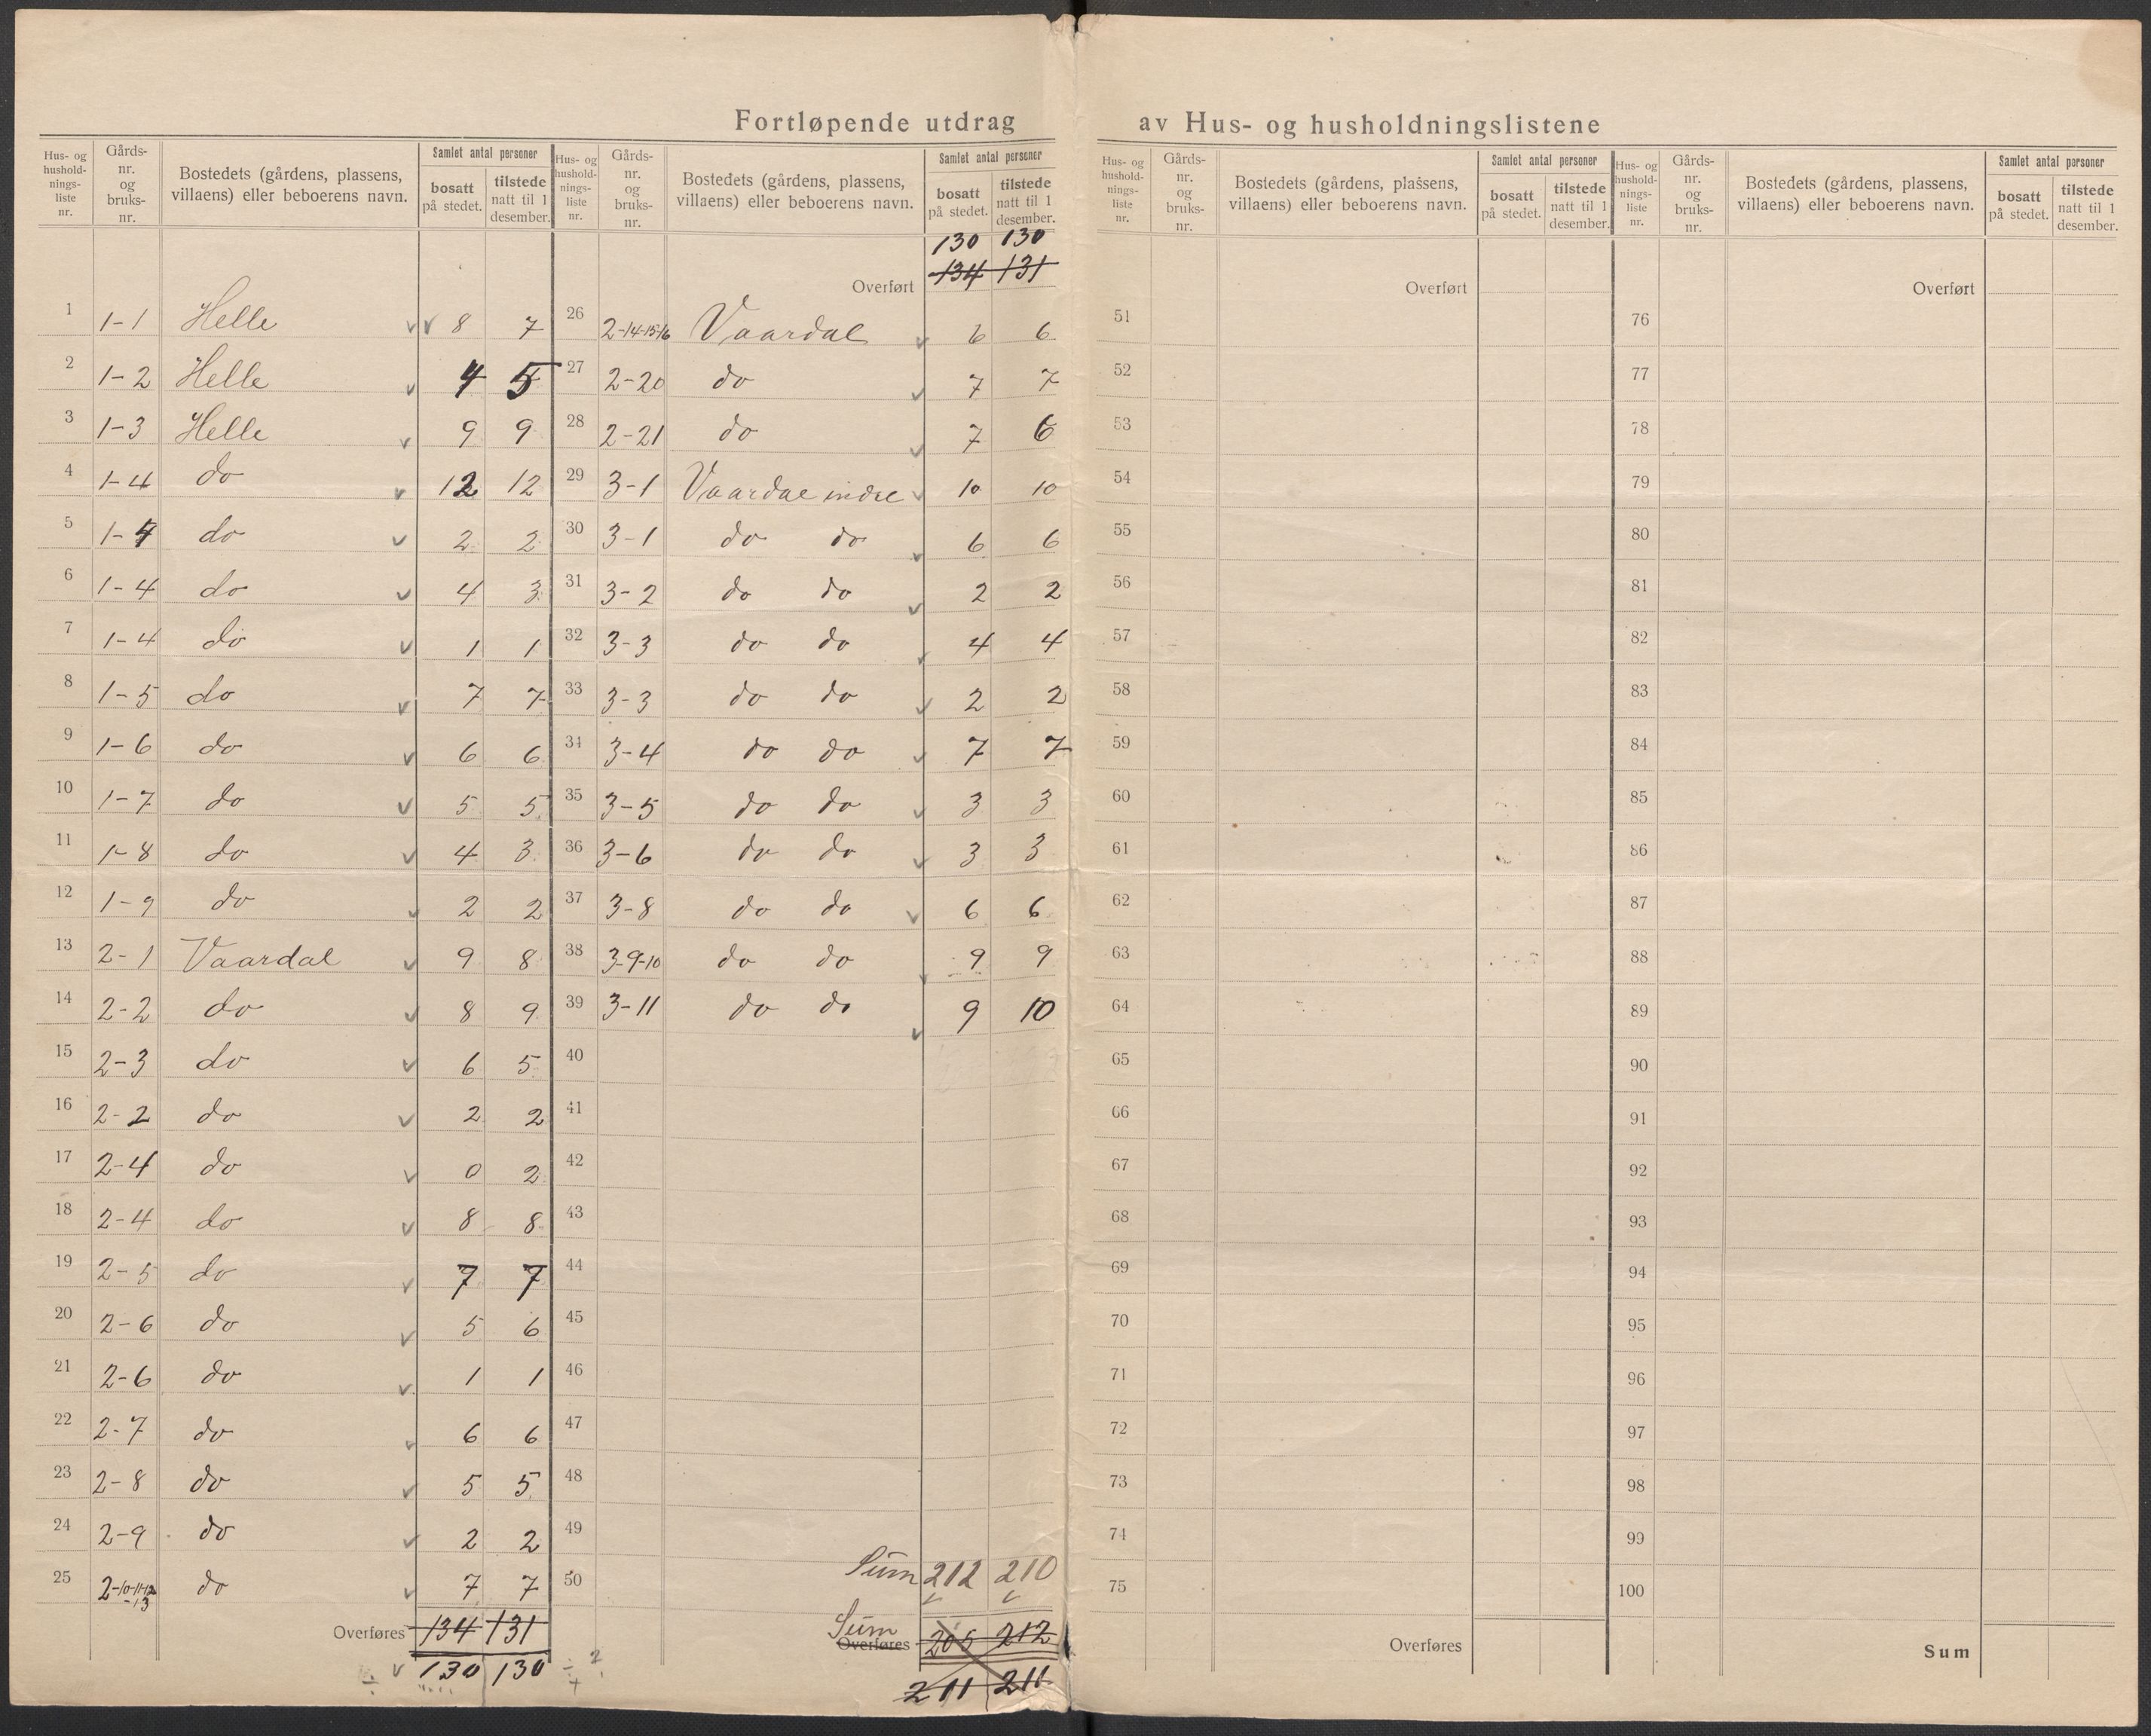 Fortløpende utdrag av Hus- og husholdningslistene
Hus- og hushold-nings-liste nr. | Gårds-nr. og bruks-nr. | Bostedets (gårdens, plassens, villaens) eller beboerens navn. | Samlet antal personer | bosatt på stedet. | tilstede natt til 1 desember.
1 1-1 Helle 8 7
2 1-2 Helle 4 5
3 1-3 Helle 9 9
4 1-4 do 12 12
5 1-4 do 2 2
6 1-4 do 4 3
7 1-4 do 1 1
8 1-5 do 7 7
9 1-6 do 6 6
10 1-7 do 5 5
11 1-8 do 4 3
12 1-9 do 2 2
13 2-1 Vaardal 9 8
14 2-2 do 8 9
15 2-3 do 6 5
16 2-2 do 2 2
17 2-4 do 0 2
18 2-4 do 8 8
19 2-5 do 7 7
20 2-6 do 5 6
21 2-6 do 1 1
22 2-7 do 6 6
23 2-8 do 5 5
24 2-9 do 2 2
25 2-10-11-12-13 do 7 7
Overføres 134 131
130 130
Hus- og hushold-nings-liste nr. | Gårds-nr. og bruks-nr. | Bostedets (gårdens, plassens, villaens) eller beboerens navn. | Samlet antal personer | bosatt på stedet. | tilstede natt til 1 desember.
130 130
Overført 134 131
26 2-14-15-16 Vaardal 6 6
27 2-20 do 7 7
28 2-21 do 7 6
29 3-1 Vaardal indre 10 10
30 3-1 do do 6 6
31 3-2 do do 2 2
32 3-3 do do 4 4
33 3-3 do do 2 2
34 3-4 do do 7 7
35 3-5 do do 3 3
36 3-6 do do 3 3
37 3-8 do do 6 6
38 3-9-10 do do 9 9
39 3-11 do do 9 10
40
41
42
43
44
45
46
47
48
49
50
Sum 212 210
Sum
Overføres 205 212
211 211
Hus- og hushold-nings-liste nr. | Gårds-nr. og bruks-nr. | Bostedets (gårdens, plassens, villaens) eller beboerens navn. | Samlet antal personer | bosatt på stedet. | tilstede natt til 1 desember.
Overført
51
52
53
54
55
56
57
58
59
60
61
62
63
64
65
66
67
68
69
70
71
72
73
74
75
Overføres
Hus- og hushold-nings-liste nr. | Gårds-nr. og bruks-nr. | Bostedets (gårdens, plassens, villaens) eller beboerens navn. | Samlet antal personer | bosatt på stedet. | tilstede natt til 1 desember.
Overført
76
77
78
79
80
81
82
83
84
85
86
87
88
89
90
91
92
93
94
95
96
97
98
99
100
Sum